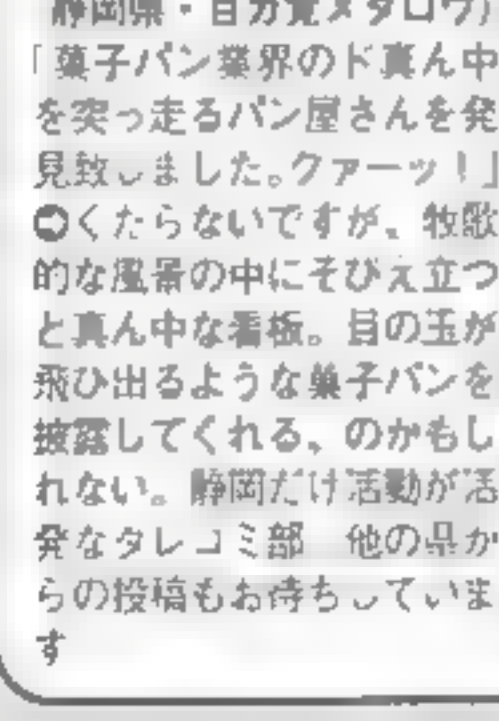 静岡県・自分党メタロウ)
「菓子パン業界のド真ん中
を突っ走るパン屋さんを発
見致しました。クァーッ!」
➲くだらないですが、牧歌
的な風景の中にそびえ立つ
ど真ん中な看板。目の玉が
飛び出るような菓子パンを
披露してくれる、のかもし
れない。静岡だけ活動が活
発なタレコミ部 他の県か
らの投稿もお待ちしていま
す